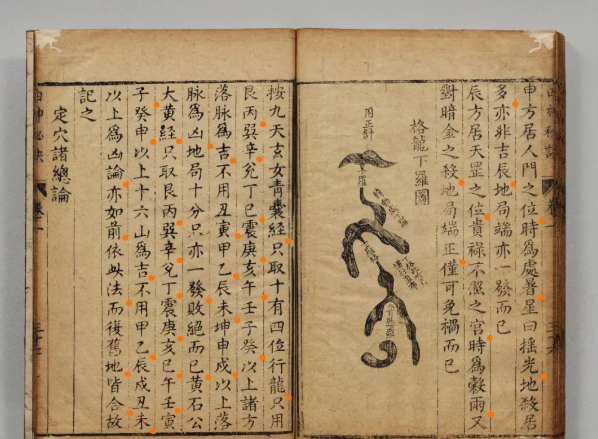 申方居人門之位時為處暑星曰揺光地殺居
多亦非吉辰地局端亦一發而已
辰方居天罡之位貴祿不照之宮時爲穀雨又
對暗金之殺地局端正僅可免禍而已
格龍下羅圖
按九天玄女青囊經只取十有四位行龍只用
艮丙巽辛兊丁巳震庚亥午壬子癸以上諸方
落脉爲吉不用丑寅甲乙辰未坤申戌以上落
脉爲凶地局十分只亦一發敗絕而已黄石公
大黄經只取艮丙巽辛兊丁震庚亥巳午壬寅
子癸申以上十六山爲吉不用甲乙辰戌丑未
以上爲凶論亦如前依此法而後舊地皆合故
記之
定穴諸總論